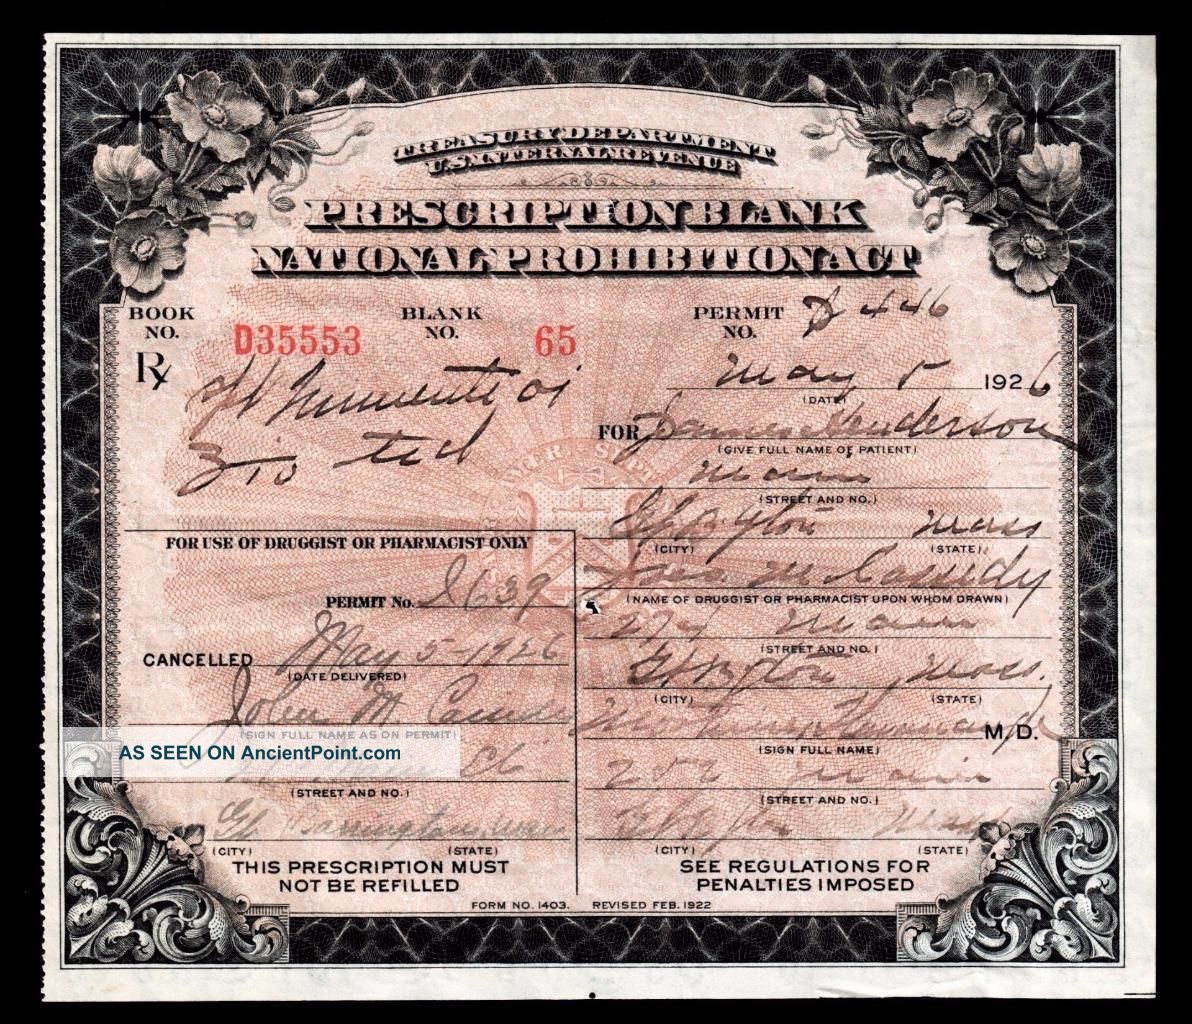 TREASURY DEPARTMENT
U.S. INTERNAL REVENUE
PRESCRIPTION BLANK
NATIONAL PROHIBITION ACT
BOOK NO. D35553 BLANK NO. 65 PERMIT NO. 446
Rx
May 5 1926
(DATE)
FOR James Henderson
(GIVE FULL NAME OF PATIENT)
Main
(STREET AND NO.)
Mass
(CITY) (STATE)
John M Cassidy
(NAME OF DRUGGIST OR PHARMACIST UPON WHOM DRAWN)
Main
(STREET AND NO.)
Mass.
(CITY) (STATE)
M.D.
(SIGN FULL NAME)
252 Main
(STREET AND NO.)
Mass
(CITY) (STATE)
SEE REGULATIONS FOR
PENALTIES IMPOSED
FOR USE OF DRUGGIST OR PHARMACIST ONLY
PERMIT No. 639
CANCELLED May 5-1926
(DATE DELIVERED)
John M
(SIGN FULL NAME AS ON PERMIT)
AS SEEN ON AncientPoint.com
(STREET AND NO.)
Gt Barrington, Mass
(CITY) (STATE)
THIS PRESCRIPTION MUST
NOT BE REFILLED
FORM NO. 1403. REVISED FEB. 1922